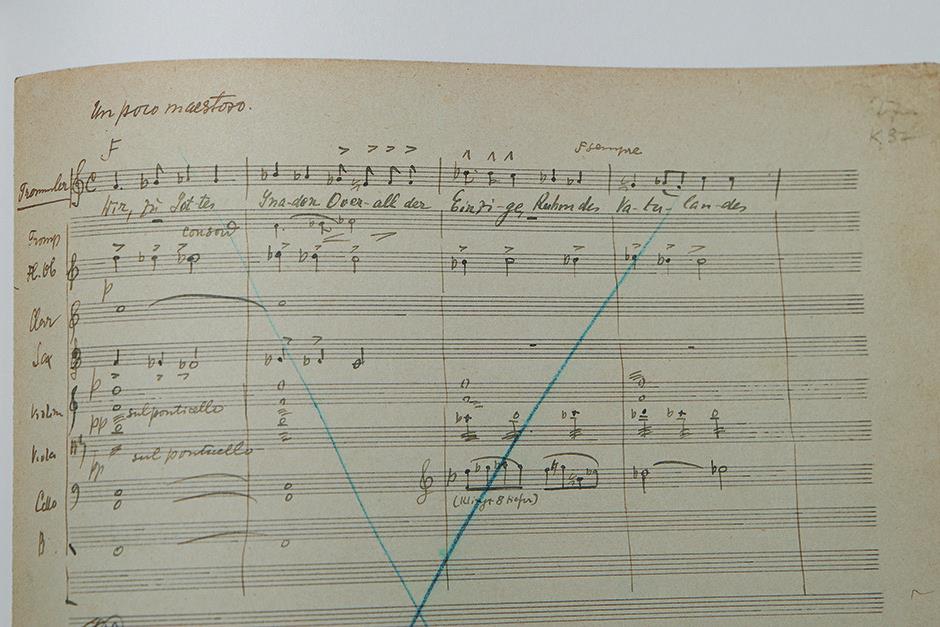 Un poco maestoso.
F
F sempre
Trommler
Wir, zu Got-tes Gna-den Over-all der Einzi-ge, Ruhm des Va-ter-lan-des
con sord
Tromp
Fl. Ob
p
Clar
Sax
p
Violin
pp sul ponticello
Viola
pp sul ponticello
p
Cello
(Klingt 8 tiefer)
B.